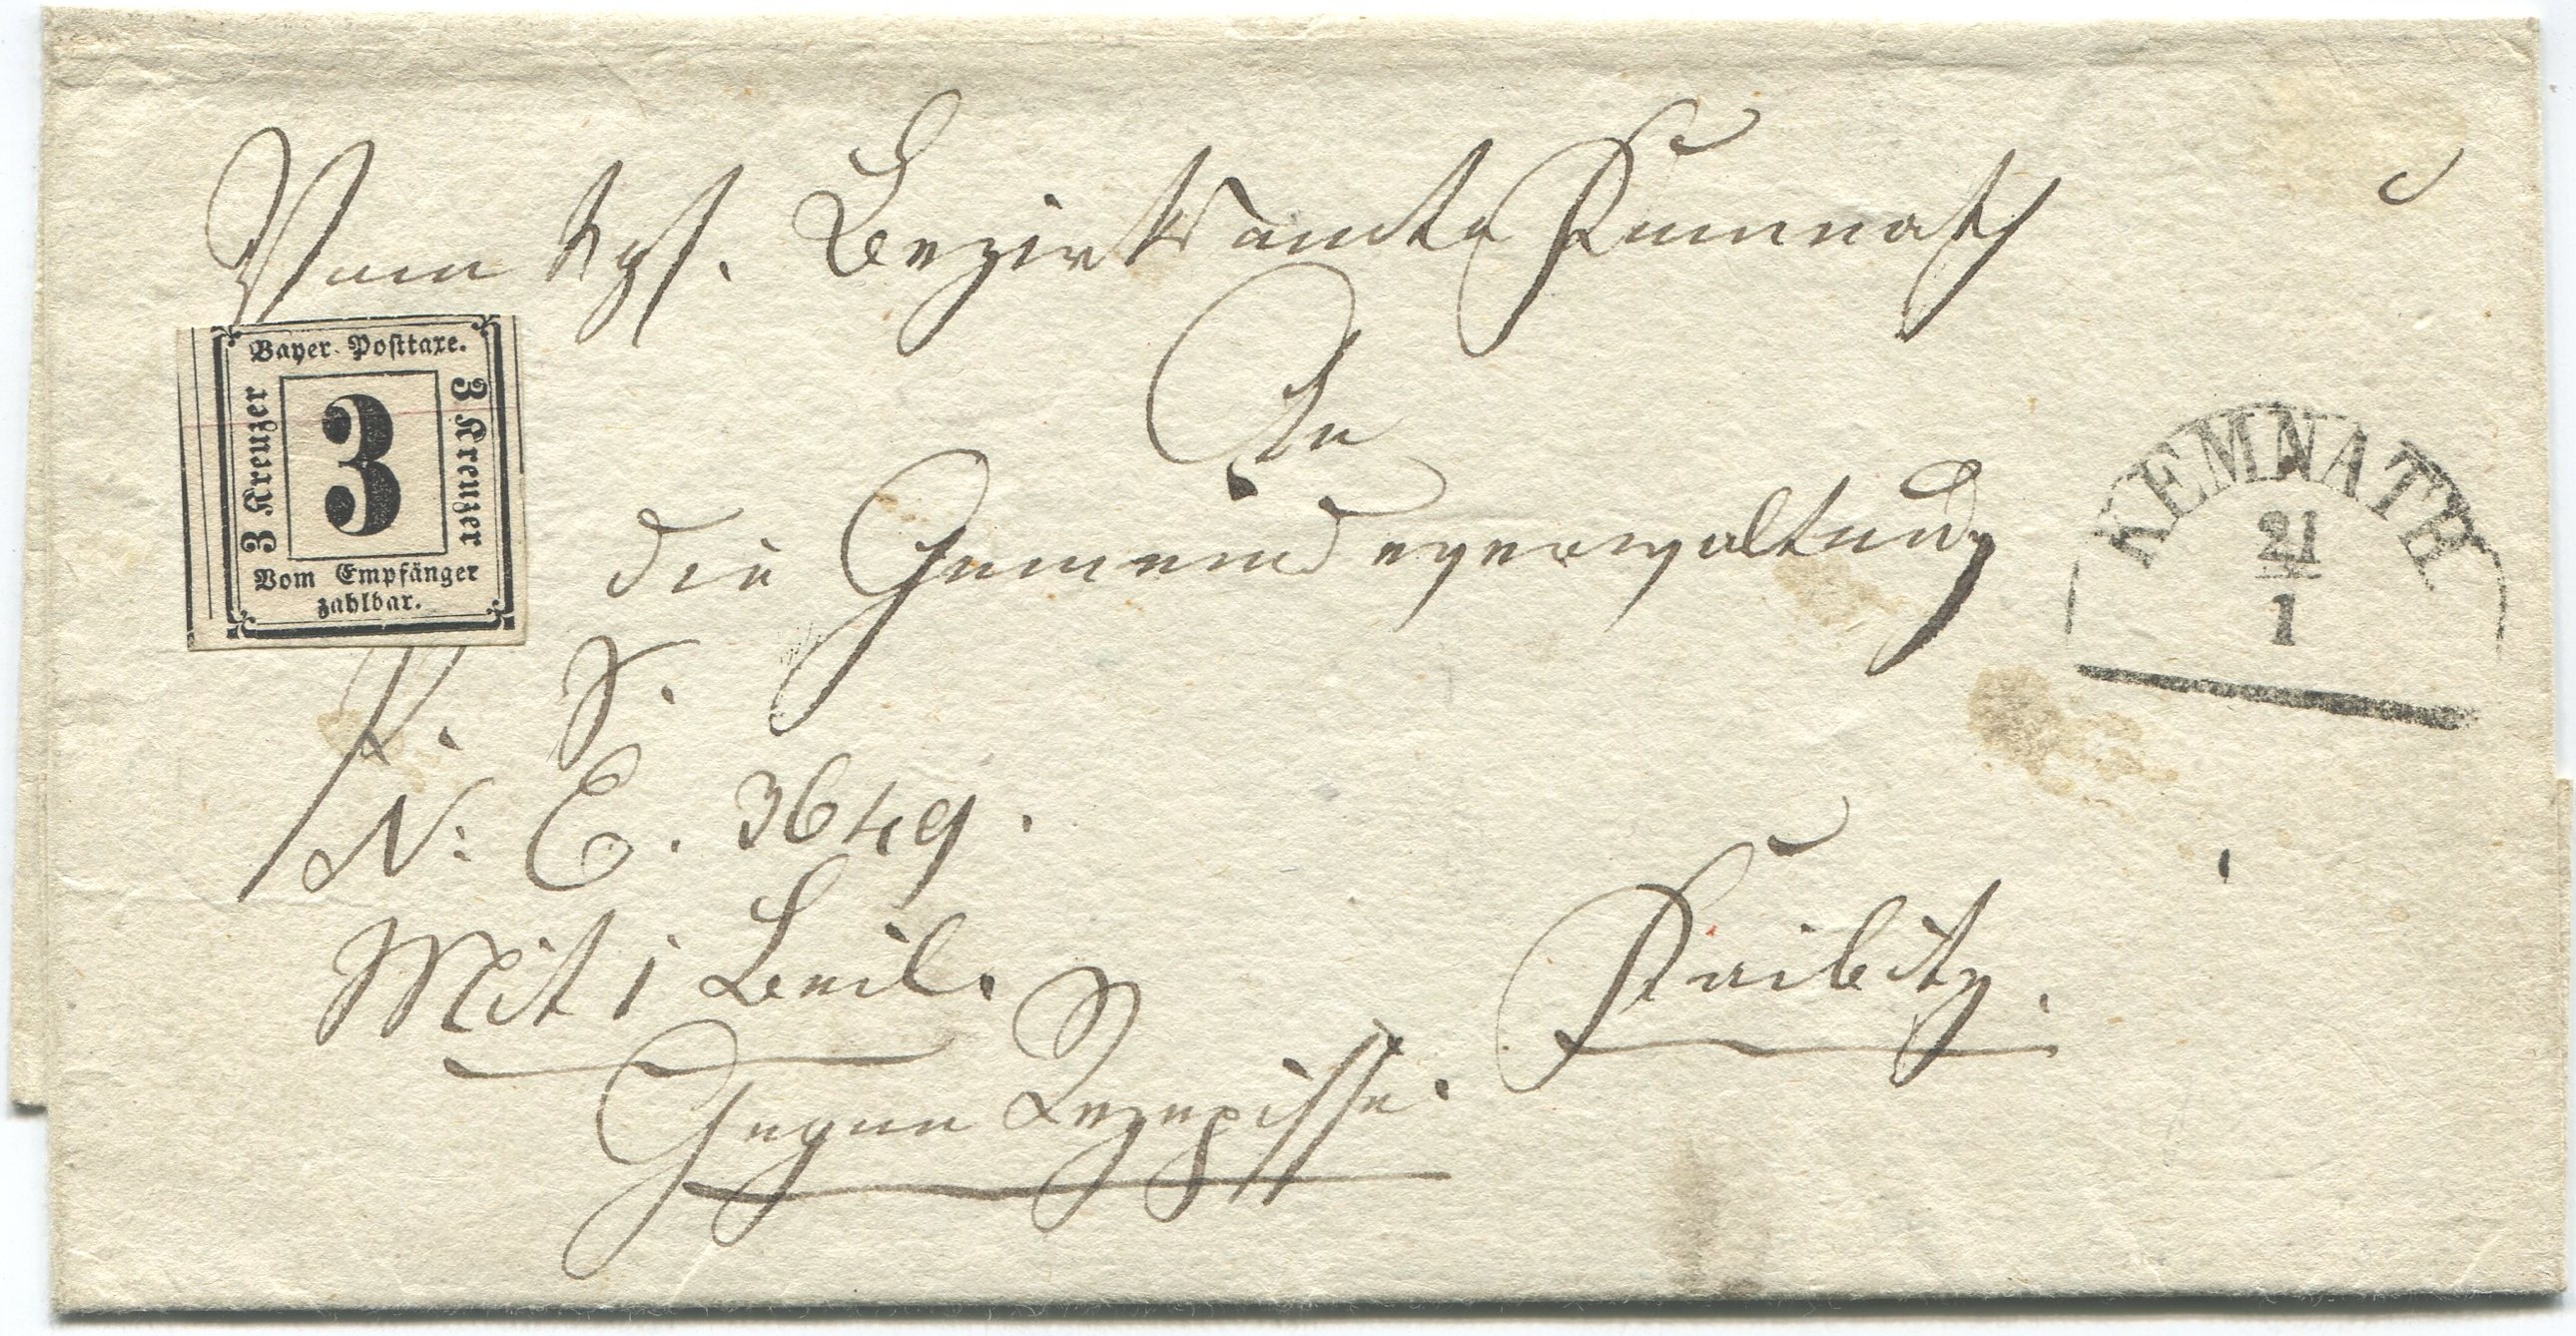 Vom Kgl. Bezirksamte Kemnath
An
die Gemeindeverwaltung
Bayer. Posttaxe.
3 Kreuzer
3
3 Kreuzer
Vom Empfänger
zahlbar.
KEMNATH
21
1
R. S.
N: E. 3649.
Mit 1 Beil.
Kaibitz.
Gegen Rezepisse.